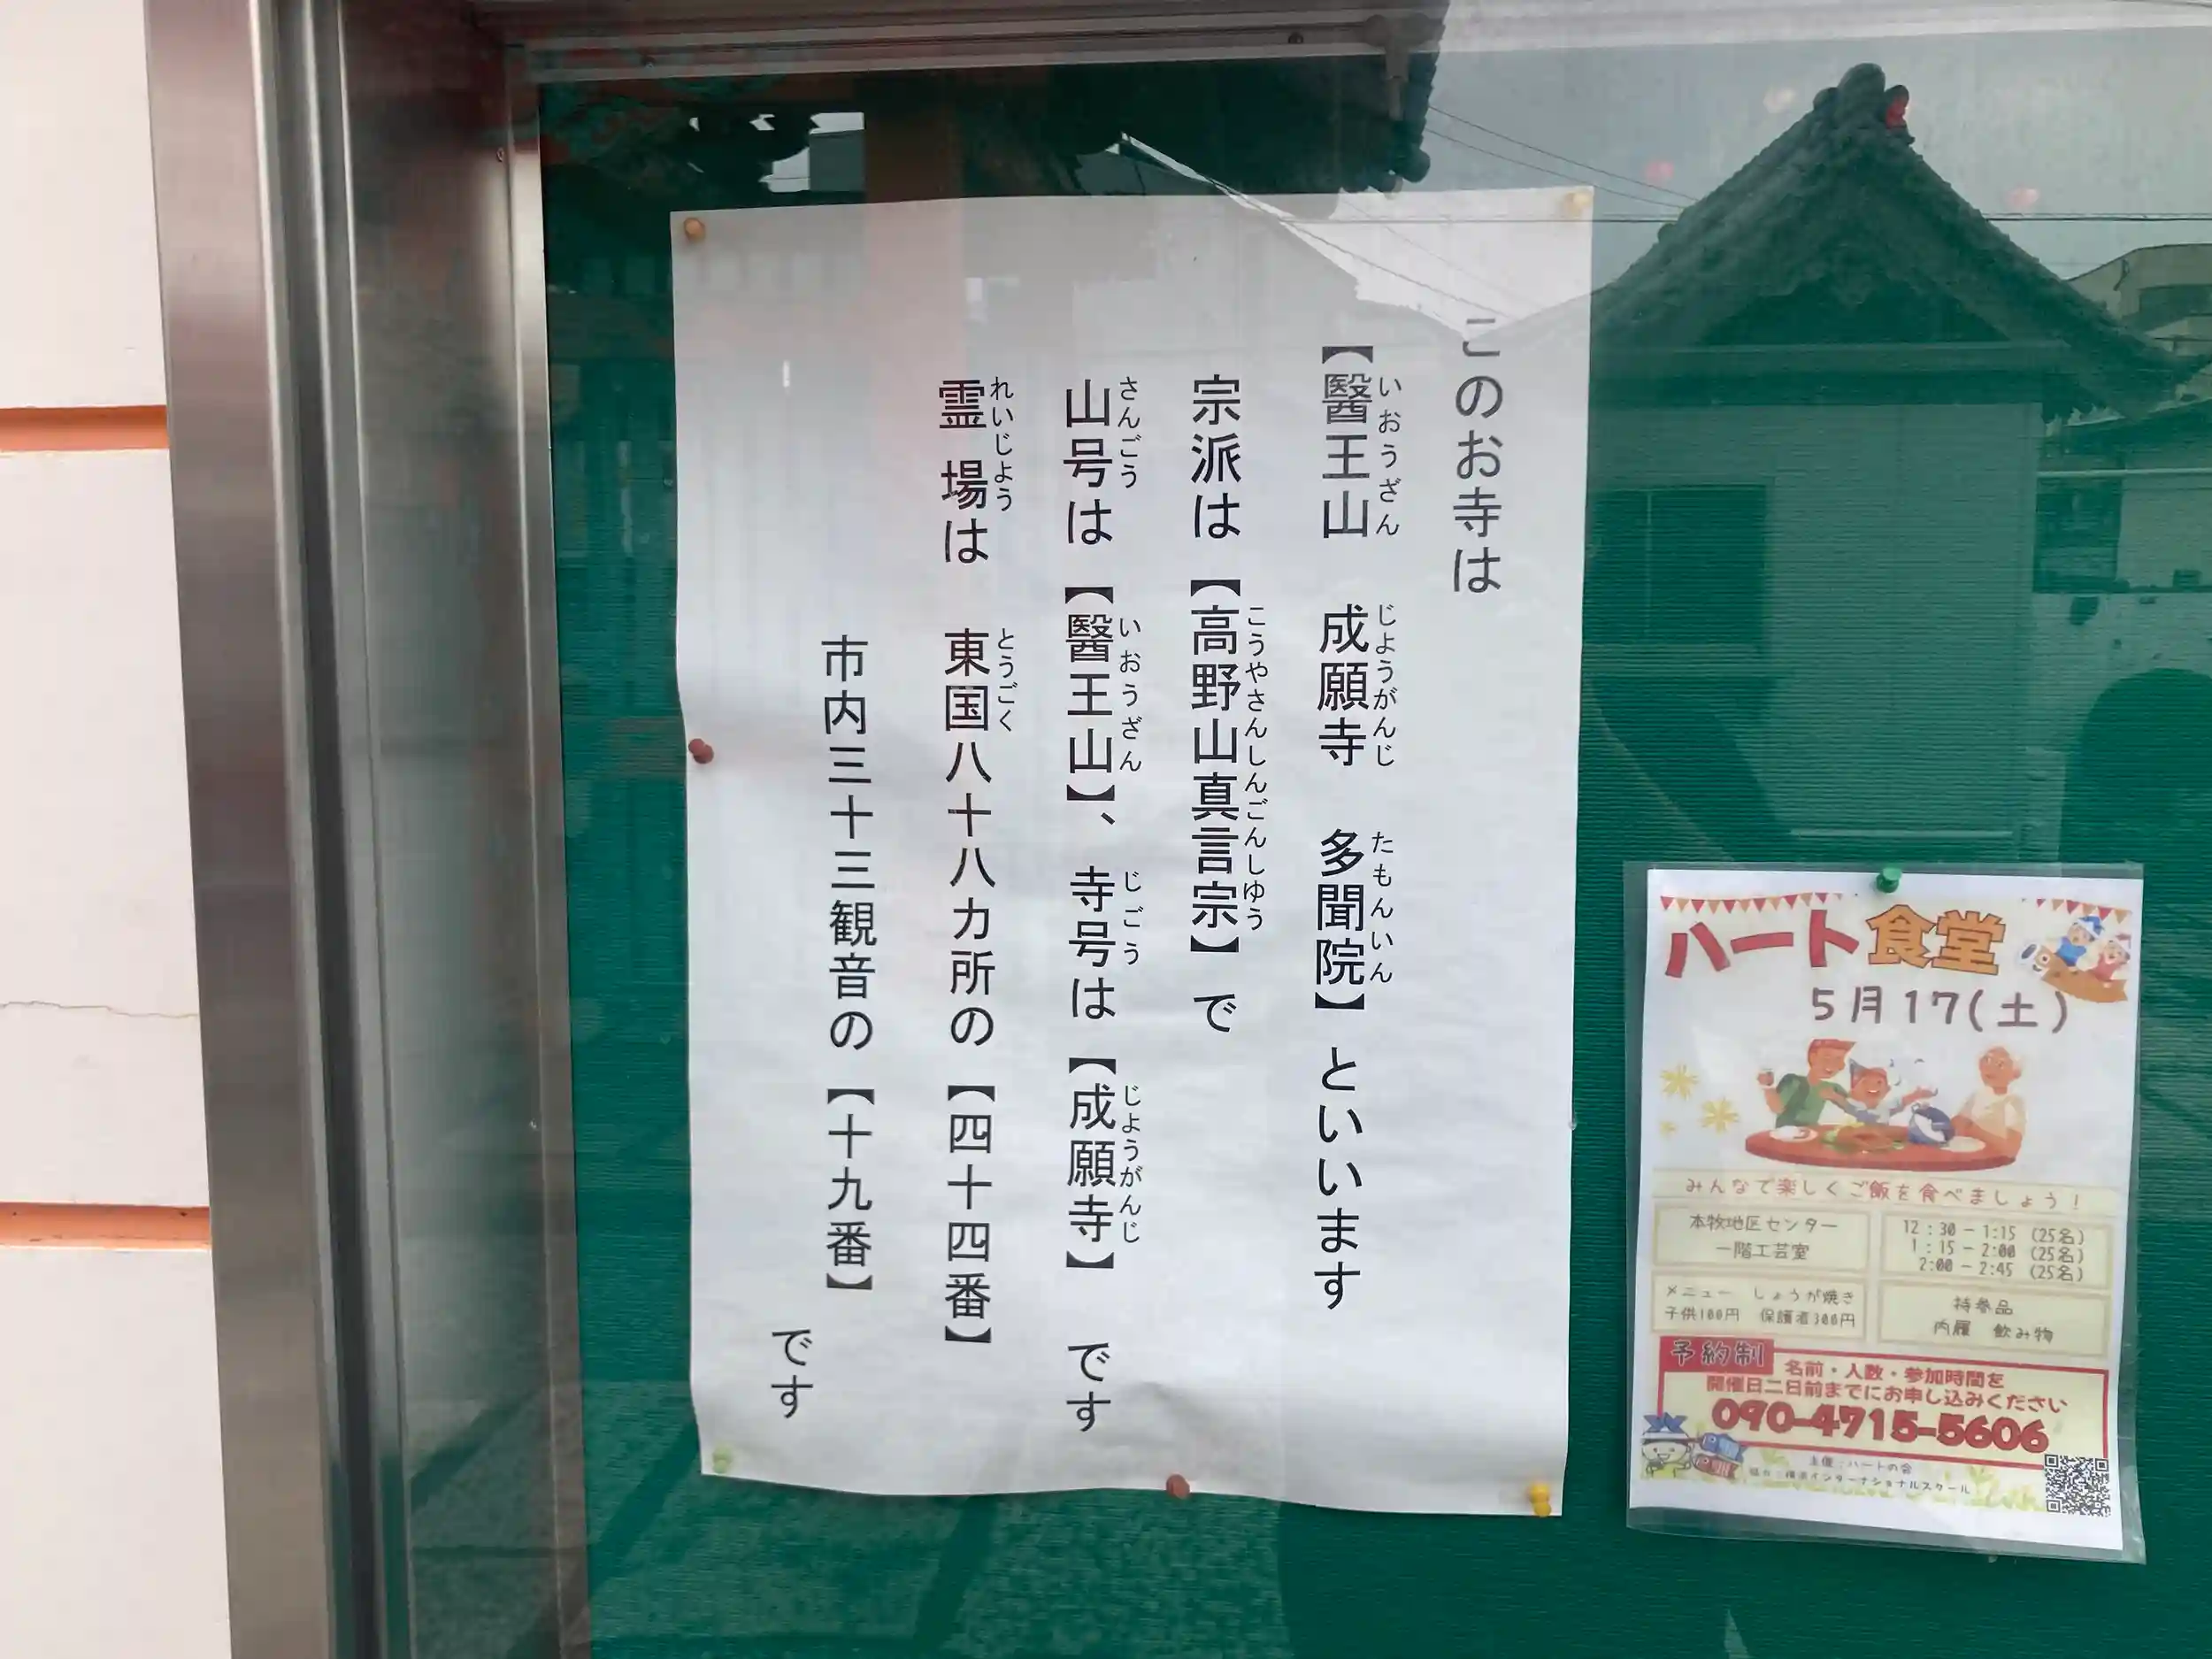 このお寺は
【醫王山　成願寺　多聞院】といいます
いおうざん　じようがんじ　たもんいん
宗派は【高野山真言宗】で
こうやさんしんごんしゆう
山号は【醫王山】、寺号は【成願寺】　です
さんごう　いおうざん　じごう　じようがんじ
霊場は　東国八十八カ所の【四十四番】
れいじよう　とうごく
市内三十三観音の【十九番】
です
ハート食堂
5月17(土)
みんなで楽しくご飯を食べましょう！
本牧地区センター
一階工芸室
12：30－1:15（25名）
1：15－2:00（25名）
2:00－2:45（25名）
メニュー　しょうが焼き
子供100円　保護者300円
持参品
内履　飲み物
予約制
名前・人数・参加時間を
開催日二日前までにお申し込みください
090-4715-5606
主催：ハートの会
協力：横浜インターナショナルスクール